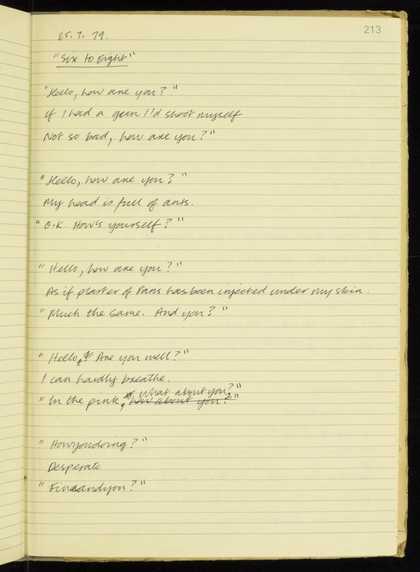 213
25.7.79.
"Six to Eight"
"Hello, how are you?"
If I had a gun I'd shoot myself
Not so bad, how are you?"
"Hello, how are you?"
My head is full of ants.
"O.K. How's yourself?"
"Hello, how are you?"
As if plaster of Paris has been injected under my skin.
"Much the same. And you?"
"Hello, Are you well?"
I can hardly breathe.
What about you?"
"In the pink, how about you?"
"Howyoudoing?"
Desperate
"Fineandyou?"